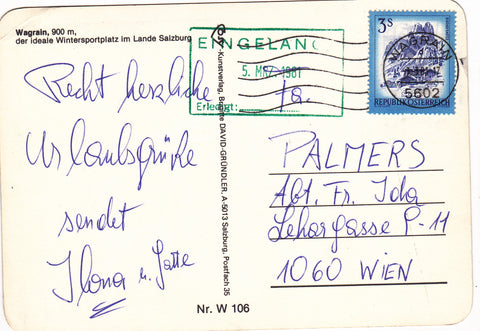 Wagrain, 900 m,
der ideale Wintersportplatz im Lande Salzburg
Recht herzliche
Urlaubsgrüße
sendet
Ilona u. Gatte
EINGELANGT
5. MRZ. 1981
Erledigt:
Kunstverlag, Brigitte DAVID-GRÜNDLER, A-5013 Salzburg, Postfach 35
3S
REPUBLIK ÖSTERREICH
WAGRAIN
5602
PALMERS
Abt. Fr. Ida
Lehargasse 9-11
1060 WIEN
Nr. W 106